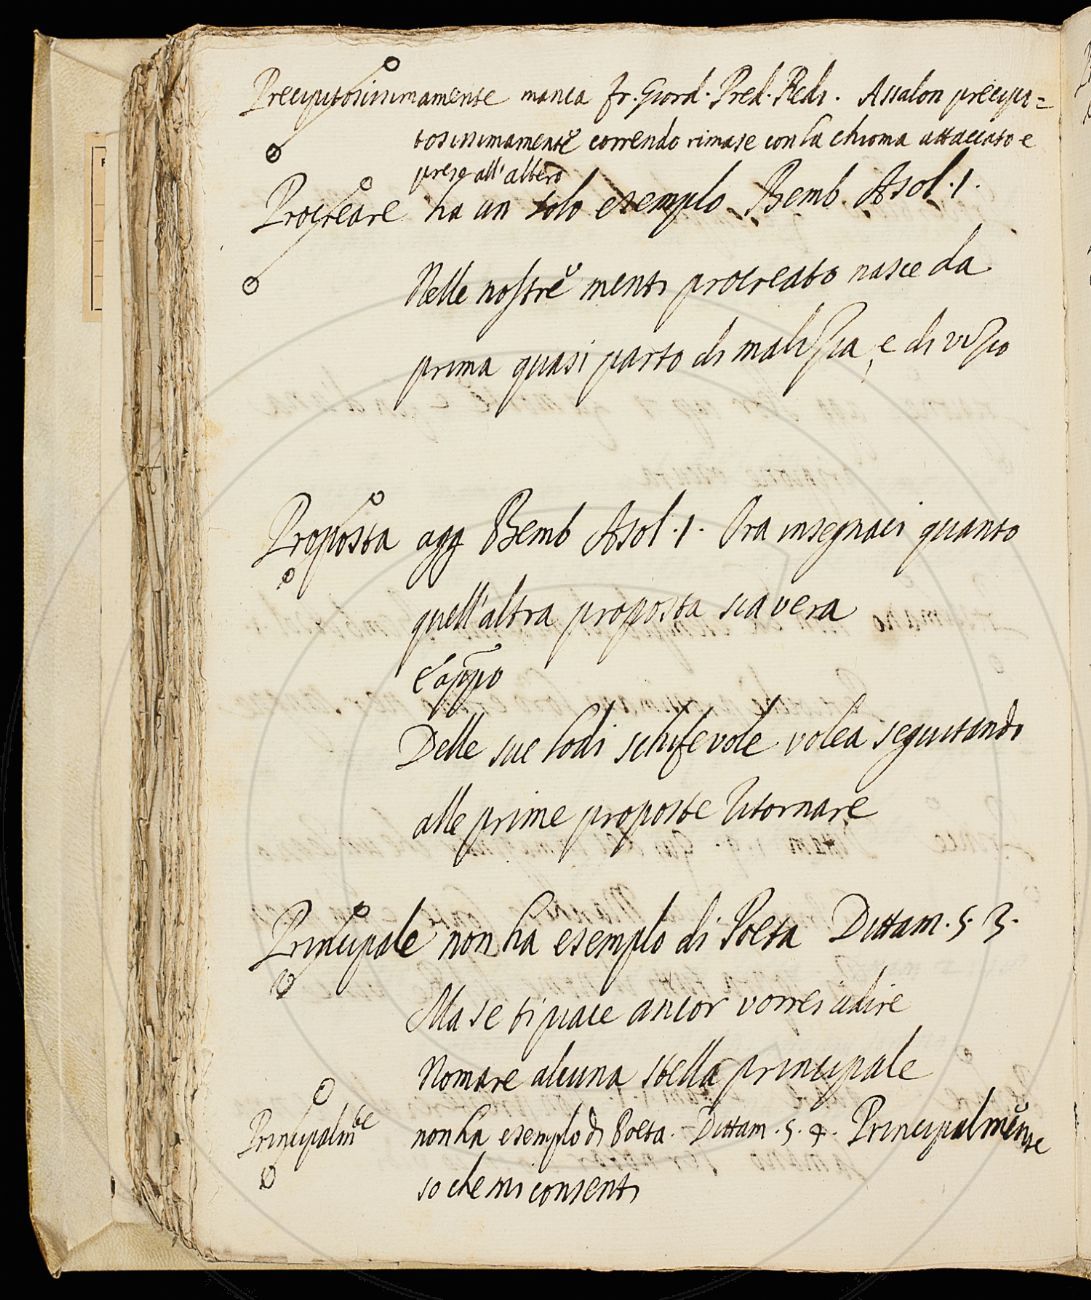 Precipitosissimamente manca fr. Giord. Pred. Redi. Assalon precipi=
tosissimamente correndo rimase con la chioma attaccato e
preso all'albero
Procreare ha un solo esemplo Bemb. Asol. 1.
Nelle nostre menti procreato nasce da
prima quasi parto di malizia, e di vizio
Proposta agg Bemb Asol. 1. Ora insegnaci quanto
quell'altra proposta sia vera
E appo
Delle sue lodi schifevole volea seguitando
alle prime proposte ritornare
Principale non ha esemplo di Poeta Dittam. 5. 3.
Ma se ti piace ancor vorrei udire
Nomare alcuna stella principale
Principalmte non ha esemplo di Poeta. Dittam. 5. 4. Principalmente
so che mi consenti